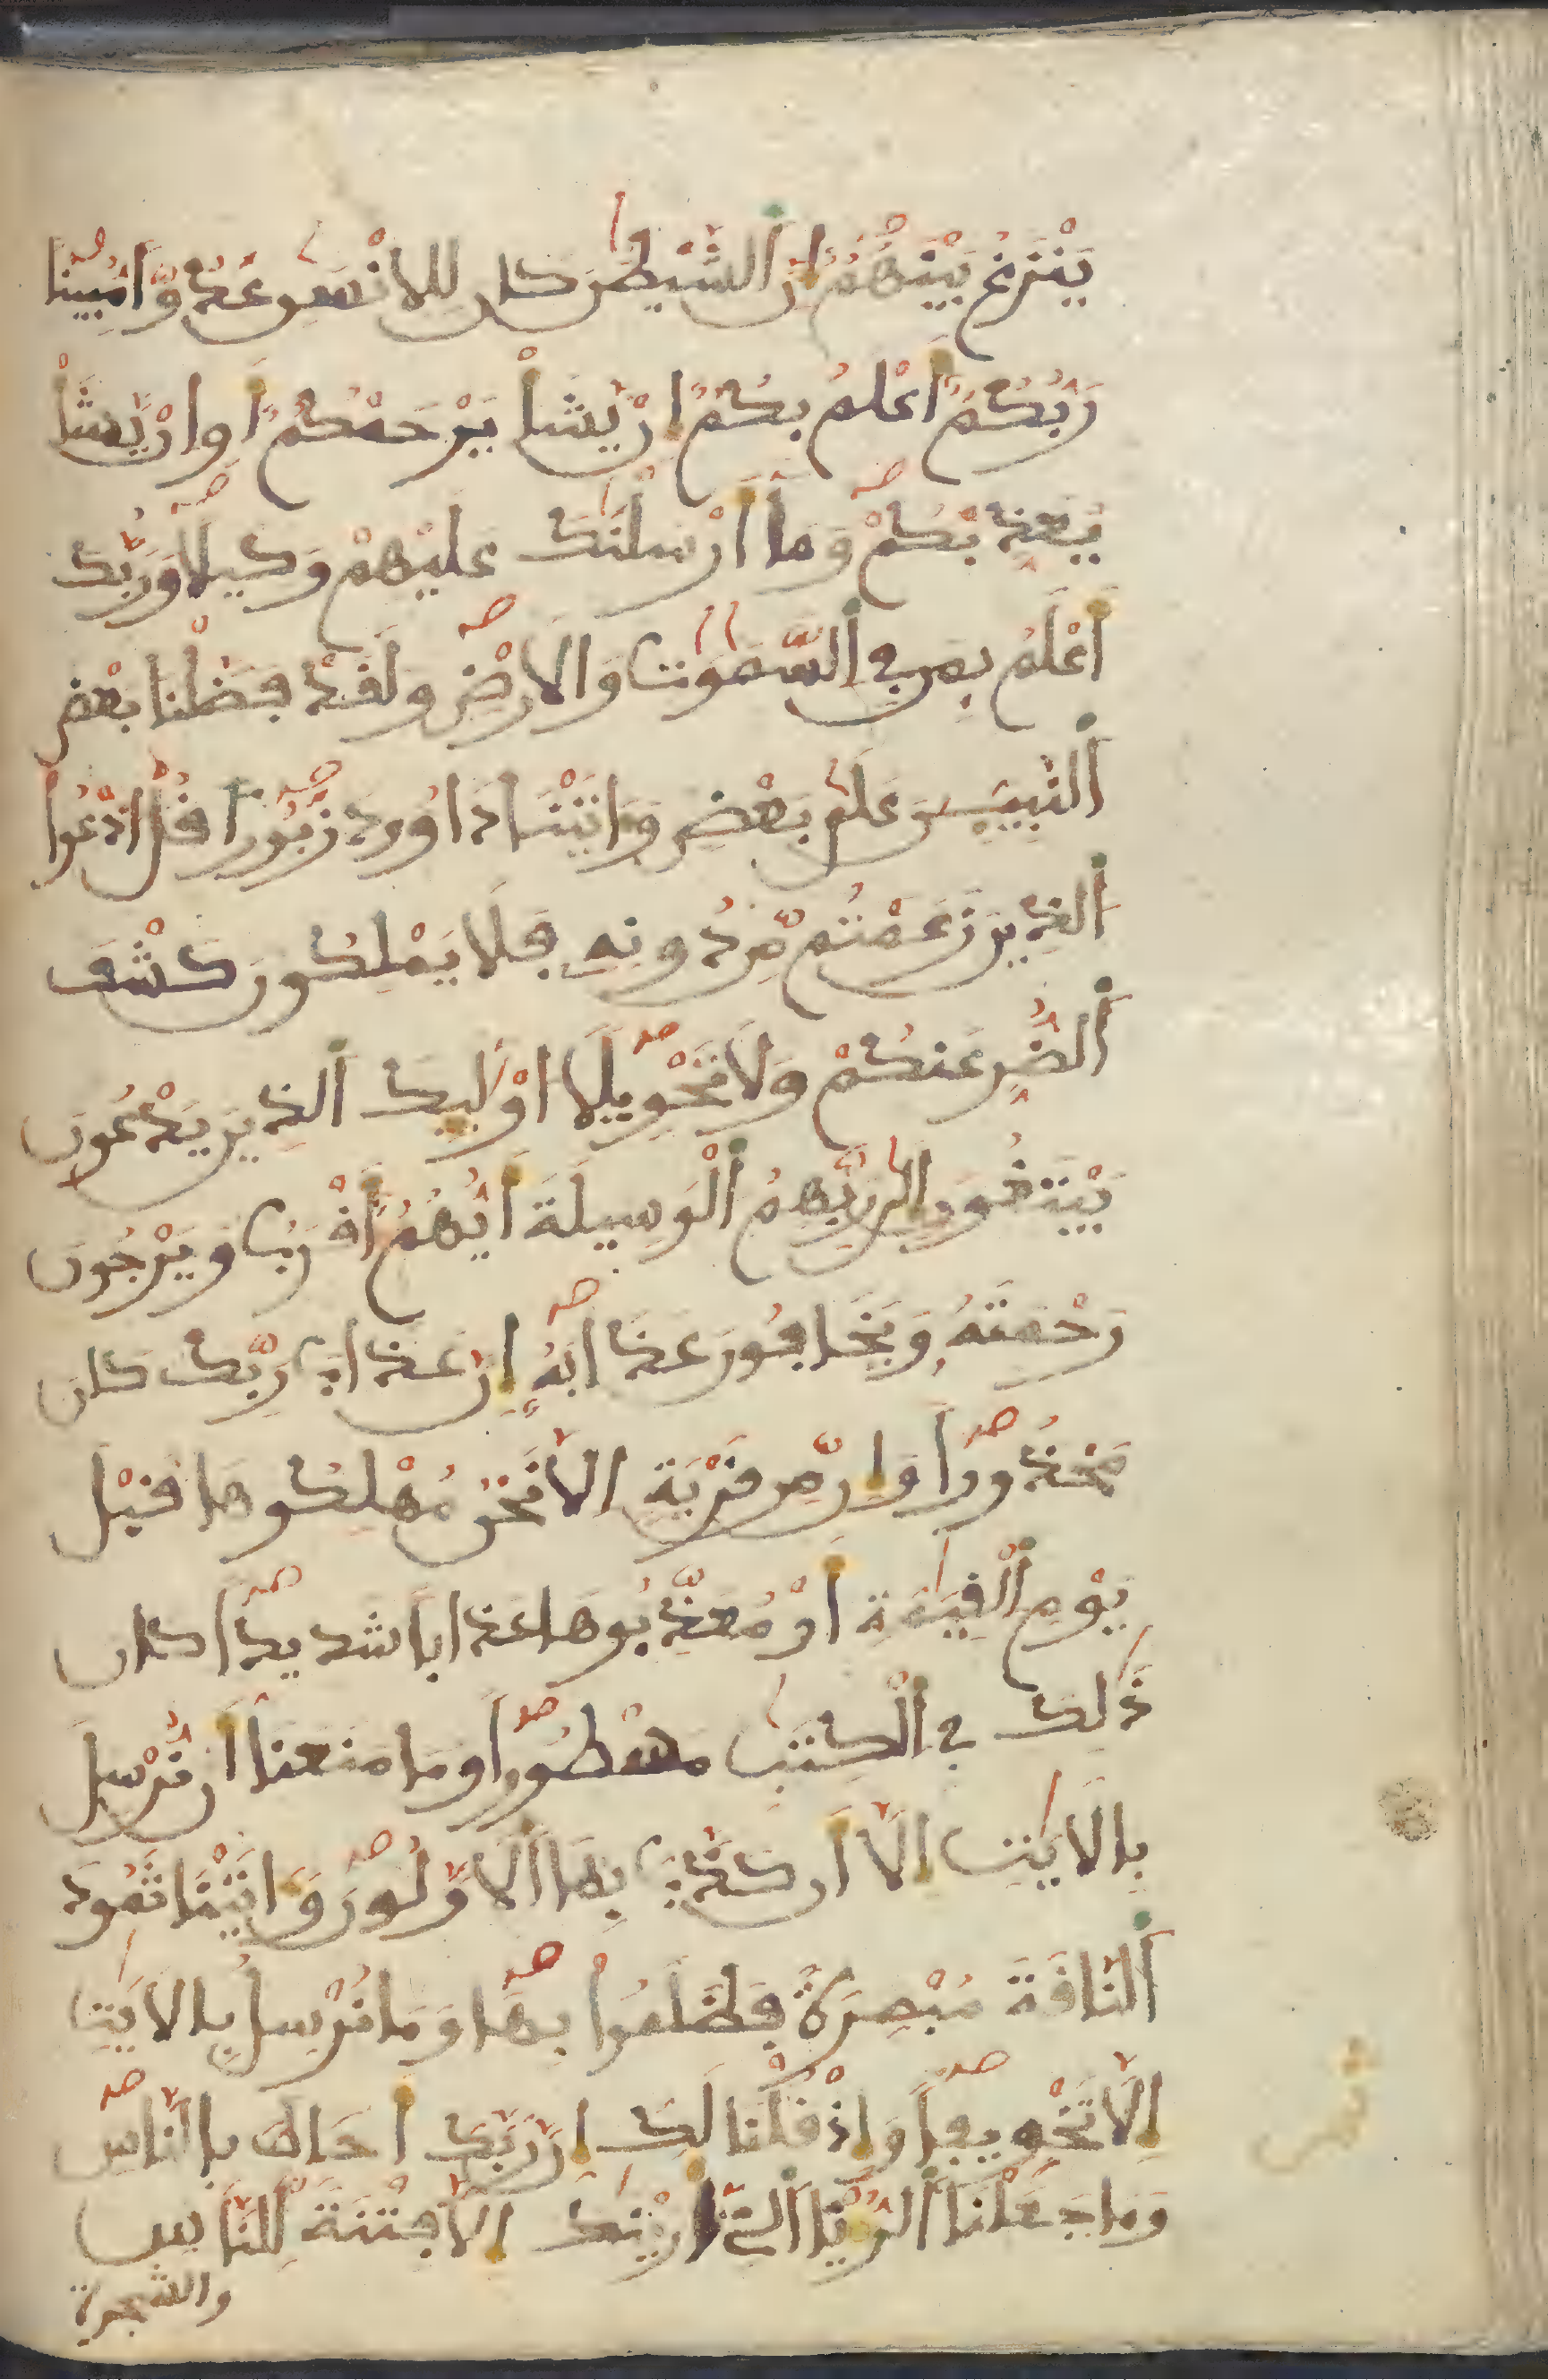 يَنْزَغُ بَيْنَهُمُۥ إِنَّ ٱلشَّيْطَٰنَ كَانَ لِلِانْسَٰنِ عَدُوّاً مُّبِيناً
رَّبُّكُمُۥ أَعْلَمُ بِكُمُۥ إِنْ يَّشَأْ يَرْحَمْكُمُۥ أَوِ انْ يَّشَأْ
يُعَذِّبْكُمْ وَمَا أَرْسَلْنَٰكَ عَلَيْهِمْ وَكِيلاً وَرَبُّكَ
أَعْلَمُ بِمَن فِي ٱلسَّمَٰوَٰتِ وَالَارْضِ وَلَقَدْ فَضَّلْنَا بَعْضَ
ٱلنَّبِيِٕينَ عَلَىٰ بَعْضٍ وَءَاتَيْنَا دَاوُودَ زَبُوراً قُلُ ادْعُواْ
ٱلذِينَ زَعَمْتُم مِّن دُونِهِ فَلَا يَمْلِكُونَ كَشْفَ
ٱلضُّرِّ عَنكُمْ وَلَا تَحْوِيلاً اوْلَٰٓئِكَ ٱلذِينَ يَدْعُونَ
يَبْتَغُونَ إِلَىٰ رَبِّهِمُ ٱلْوَسِيلَةَ أَيُّهُمُۥ أَقْرَبُ وَيَرْجُونَ
رَحْمَتَهُۥ وَيَخَافُونَ عَذَابَهُۥ إِنَّ عَذَابَ رَبِّكَ كَانَ
مَحْذُوراً وَإِن مِّن قَرْيَةٍ الَّا نَحْنُ مُهْلِكُوهَا قَبْلَ
يَوْمِ ٱلْقِيَٰمَةِ أَوْ مُعَذِّبُوهَا عَذَاباً شَدِيداً كَانَ
ذَٰلِكَ فِي ٱلْكِتَٰبِ مَسْطُوراً وَمَا مَنَعَنَا أَن نُّرْسِلَ
بِالَايَٰتِ إِلَّا أَن كَذَّبَ بِهَا ٱلَاوَّلُونَ وَءَاتَيْنَا ثَمُودَ
ٱلنَّاقَةَ مُبْصِرَةً فَظَلَمُواْ بِهَا وَمَا نُرْسِلُ بِالَايَٰتِ
إِلَّا تَخْوِيفاً وَإِذْ قُلْنَا لَكَ إِنَّ رَبَّكَ أَحَاطَ بِالنَّاسِ
وَمَا جَعَلْنَا ٱلرُّءْيَا ٱلتِي أَرَيْنَٰكَ إِلَّا فِتْنَةً لِّلنَّاسِ
والشجرة